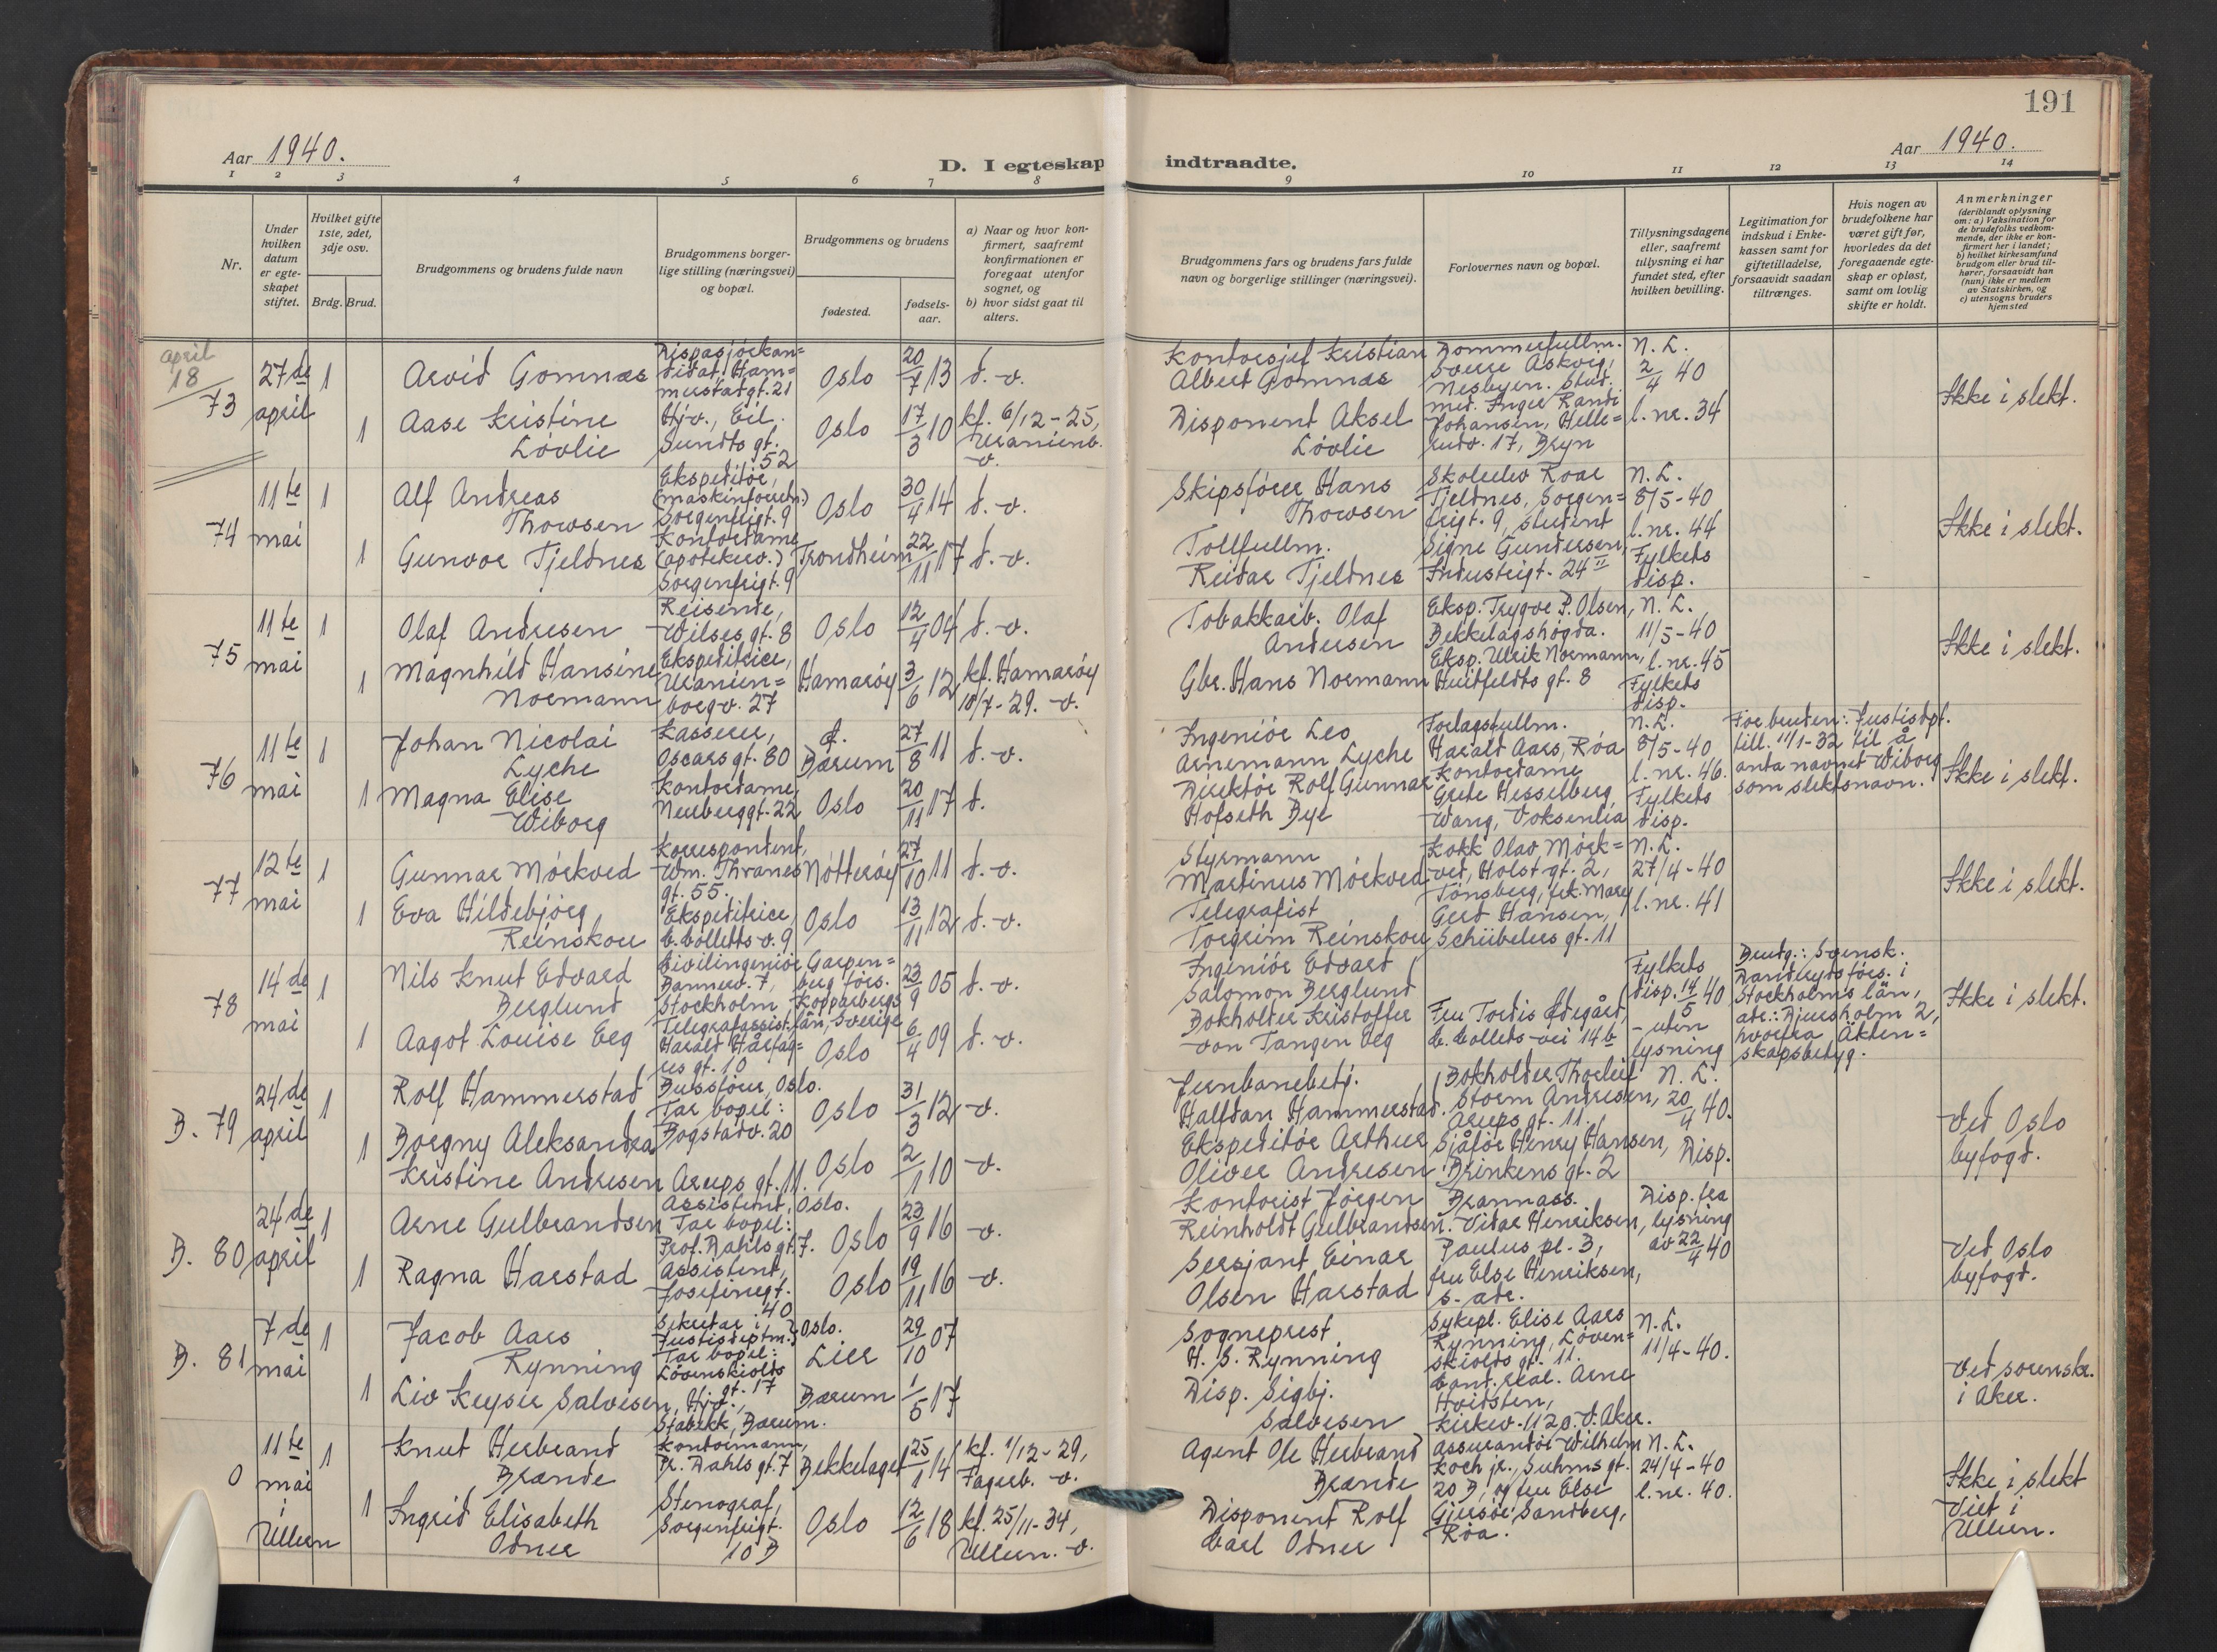 191
Aar 1940.
D. I egteskap indtraadte.
Aar 1940.
1 2 3 4 5 6 7 8 9 10 11 12 13 14
Nr.
Under hvilken datum er egteskapet stiftet.
Hvilket gifte 1ste, 2det, 3dje osv.
Brdg. Brud.
Brudgommens og brudens fulde navn
Brudgommens borgerlige stilling (næringsvei) og bopæl.
Brudgommens og brudens
fødested.
fødselsaar.
a) Naar og hvor konfirmert, saafremt konfirmationen er foregaat utenfor sognet, og
b) hvor sidst gaat til alters.
Brudgommens fars og brudens fars fulde navn og borgerlige stillinger (næringsvei).
Forlovernes navn og bopæl.
Tillysningsdagene eller, saafremt tillysning ei har fundet sted, efter hvilken bevilling.
Legitimation for indskud i Enkekassen samt for giftetilladelse, forsaavidt saadan tiltrænges.
Hvis nogen av brudefolkene har været gift før, hvorledes da det foregaaende egteskap er opløst, samt om lovlig skifte er holdt.
Anmerkninger
(deriblandt oplysning om: a) Vaksination for de brudefolks vedkommende, der ikke er konfirmert her i landet; b) hvilket kirkesamfund brudgom eller brud tilhører, forsaavidt han (hun) ikke er medlem av Statskirken, og c) utensogns bruders hjemsted
april
18
73
27de april
1
Arvid Gomnæs
Dispasjørkandidat, Hammerstadgt. 21
Oslo
20/7 13
d. v.
Kontorsjef Kristian Albert Gomnæs
Dommerfullm. Sverre Askvig, Nesbyen. Stud. med. Inger Randi Johansen, Hellerudv. 17, Bryn
N. L.
2/4 40
l. nr. 34
Ikke i slekt.
1
Aase Kristine Løvlie
Hjv., Eil. Sundts gt. 52
Oslo
17/3 10
kf. 6/12-25, Uranienb. v.
Disponent Aksel Løvlie
74
11te mai
1
Alf Andreas Thowsen
Ekspeditør, (maskinforretn.) Sorgenfrigt. 9
Oslo
30/4 14
d. v.
Skipsfører Hans Thowsen
Skoleelev Roar Tjeldnes, Sorgenfrigt. 9, student Signe Gundersen, Industrigt. 24 II
N. L.
8/5-40
l. nr. 44
Fylkets disp.
Ikke i slekt.
1
Gunvor Tjeldnes
Kontordame (apotekerv.) Sorgenfrigt. 9
Trondheim
22/11 17
d. v.
Tollfullm. Reidar Tjeldnes
75
11te mai
1
Olaf Andresen
Reisende, Wilses gt. 8
Oslo
12/4 04
d. v.
Tobakkarb. Olaf Andersen
Eksp. Trygve P. Olsen, Bekkelagshøgda. Eksp. Ulrik Normann, Huitfeldts gt. 8
N. L.
11/5-40
l. nr. 45
Fylkets disp.
Ikke i slekt.
1
Magnhild Hansine Normann
Ekspeditrice, Uranienborgv. 27
Hamarøy
3/6 12
kf. Hamarøy 10/7-29. v.
Gbr. Hans Normann
76
11te mai
1
Johan Nicolai Lyche
Kasserer, Oscars gt. 80
Ø. Bærum
27/8 11
d. v.
Ingeniør Leo Arnemann Lyche
Forlagsfullm. Harald Aars, Røa Kontordame Grete Hesselberg Wang, Voksenlia
N. L.
8/5-40
l. nr. 46.
Fylkets disp.
For bruden: Justisdpt. till. 11/1-32 til å anta navnet Wiborg som slektsnavn.
Ikke i slekt.
1
Magna Elise Wiborg
Kontordame, Neuberggt. 22
Oslo
20/11 17
d.
Direktør Rolf Gunnar Hofseth Bye
77
12te mai
1
Gunnar Mørkved
Korrespondent, Wm. Thranes gt. 55.
Nøtterøy
27/10 11
d. v.
Styrmann Martinus Mørkved
Kokk Olav Mørkved, Holst gt. 2, Tønsberg, frk. Mary Gerd Hansen, Schübelers gt. 11
N. L.
27/4-40
l. nr. 41
Ikke i slekt.
1
Eva Hildebjørg Reinskou
Ekspeditrice, C. Colletts v. 9
Oslo
13/11 12
d. v.
Telegrafist Torgrim Reinskou
78
14de mai
1
Nils Knut Edvard Berglund
Civilingeniør Bannerv. 7, Stockholm
Garpenberg førs. Kopparbergs län, Sverige
23/9 05
d. v.
Ingeniør Edvard Salomon Berglund
Fru Tordis Ødegård, C. Colletts vei 14 b
Fylkets disp. 14/5 40 - uten lysning
Brudg.: Svensk. Danderyds förs. i Stockholms län, adr.: Djursholm 2, hvorfra Äktenskapsbetyg.
Ikke i slekt.
1
Aagot Louise Eeg
Telegrafassist. Harald Hårfagres gt. 10
Oslo
6/4 09
d. v.
Bokholder Kristoffer von Tangen Eeg
B. 79
24de april
1
Rolf Hammerstad
Bussfører, Oslo. Tar bopel: Bogstadv. 20
Oslo
31/3 12
v.
Jernbanebetj. Halfdan Hammerstad.
Bokholder Thorleif Storm Andresen, Arups gt. 11. Sjåfør Henry Hansen, Brinkens gt. 2
N. L.
20/4 40.
Disp.
Ved Oslo byfogd.
1
Borgny Aleksandra Kristine Andresen
Arups gt. 11.
Oslo
2/1 10
v.
Ekspeditør Arthur Oliver Andresen
B. 80
24de april
1
Arne Gulbrandsen
Assistent, Oslo. Tar bopel: Prof. Dahls gt. 7.
Oslo
23/9 16
v.
Kontorist Jørgen Reinholdt Gulbrandsen.
Brannass. Vidar Henriksen, Paulus pl. 3, fru Else Henriksen, s. adr.
Disp. fra lysning av 22/4 40
Ved Oslo byfogd.
1
Ragna Harstad
Assistent, Josefinegt. 40
Oslo
19/11 16
v.
Sersjant Einar Olsen Harstad
B. 81
7de mai
1
Jacob Aars Rynning
Sekretær i Justisdeptm., Oslo. Tar bopel: Løvenskiolds gt. 17
Lier
29/10 07
Sogneprest H. S. Rynning
Sykepl. Elise Aars Rynning, Løvenskiolds gt. 11. Cand. real. Arne Hvidsten, Kirkev. 112 o. V. Aker.
N. L.
11/4-40.
Ved sorenskr. i Aker.
1
Liv Keyser Salvesen
Hjv., Stabekk, Bærum.
Bærum
1/5 17
Disp. Sigbj. Salvesen
0
11te mai i Ullern
1
Knut Herbrand Brænde
Kontormann, Pr. Dahls gt. 7
Bekkelaget
25/1 14
kf. 1/12-29, Fagerb. v.
Agent Ole Herbrand Brænde
Assurandør Wilhelm Koch jr., Suhms gt. 20 B, og fru Else Gjersøe Sandberg, Røa.
N. L.
24/4-40
l. nr. 40.
Ikke i slekt
Viet i Ullern.
1
Ingrid Elisabeth Odner
Stenograf, Sorgenfrigt. 10 B
Oslo
12/6 18
kf. 25/11-34, Ullern. v.
Disponent Rolf Carl Odner